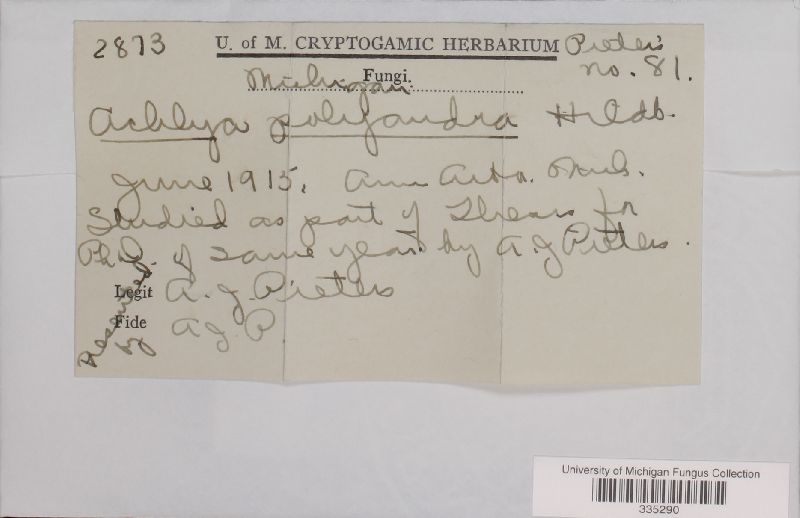 2873 U. of M. CRYPTOGAMIC HERBARIUM Pieters
no. 81.
Michigan Fungi.
Achlya polyandra Hildb.
June 1915. Ann Arbor. Mich.
Studied as part of Thesis for
Ph.D. of same year by A. J. Pieters.
Legit A. J. Pieters
Fide A J P
University of Michigan Fungus Collection
335290